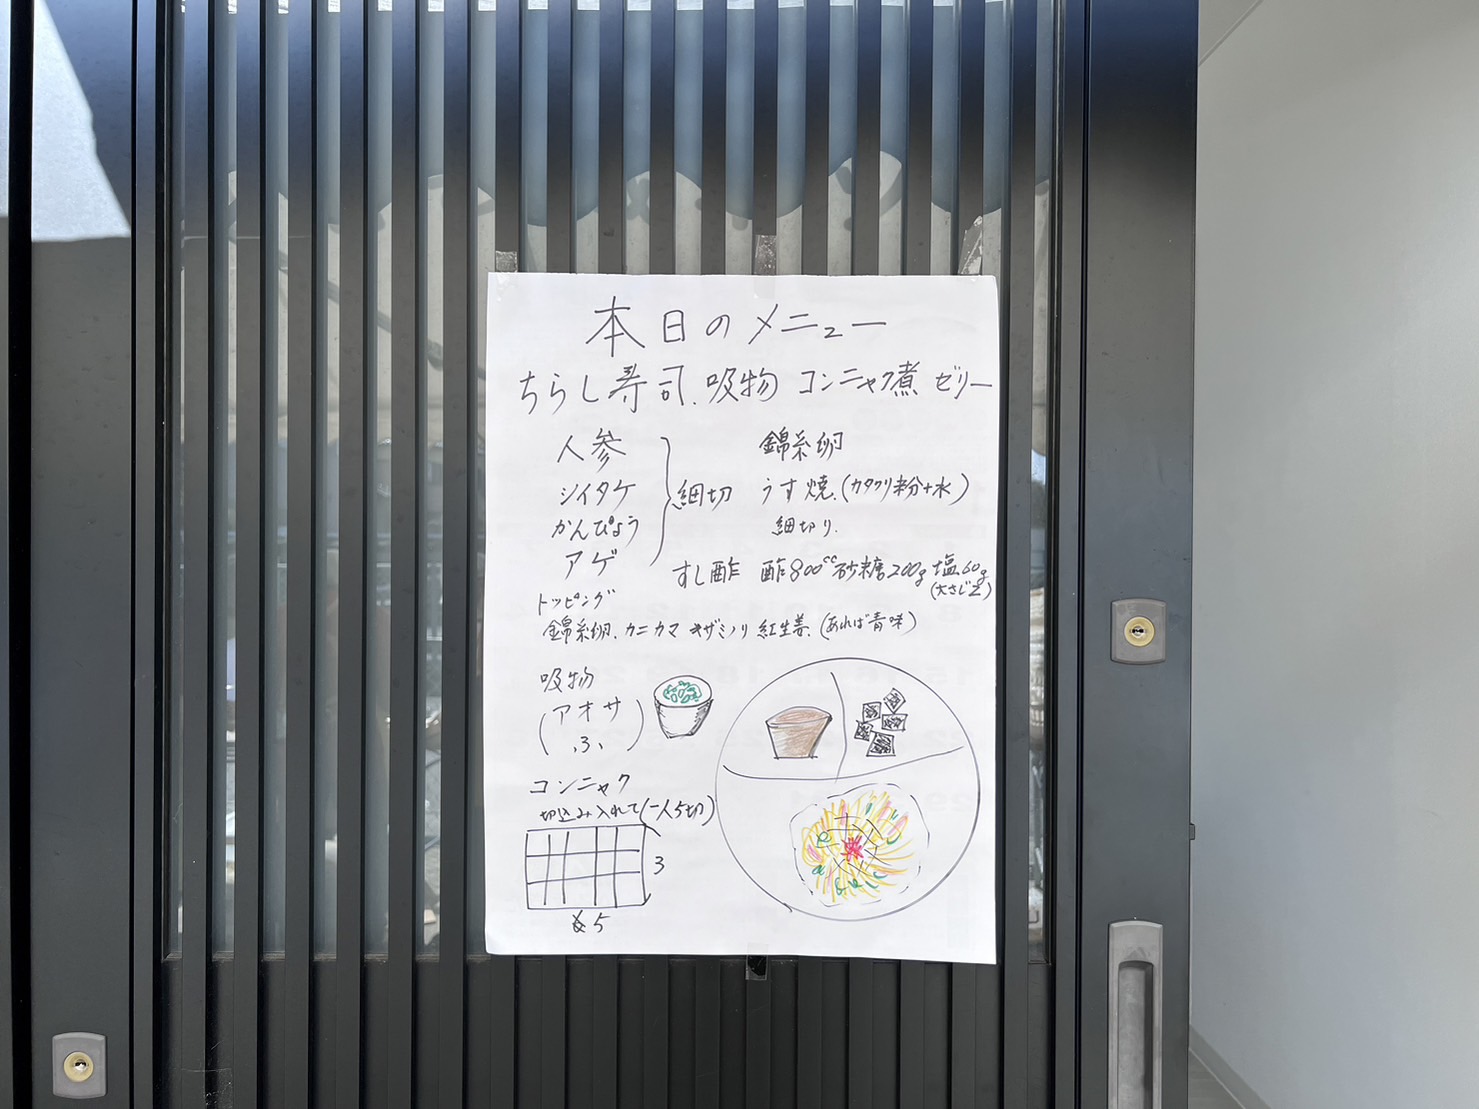 本日のメニュー
ちらし寿司、吸物 コンニャク煮 ゼリー
人参
シイタケ
かんぴょう
アゲ
細切
錦糸卵
うす焼、(カタクリ粉+水)
細切り、
すし酢 酢800cc砂糖200g塩60g
(大さじ2)
トッピング
錦糸卵、カニカマ キザミノリ 紅生姜、(あれば青味)
吸物
(アオサ
ふ、)
コンニャク
切込み入れて(一人5切)
3
5